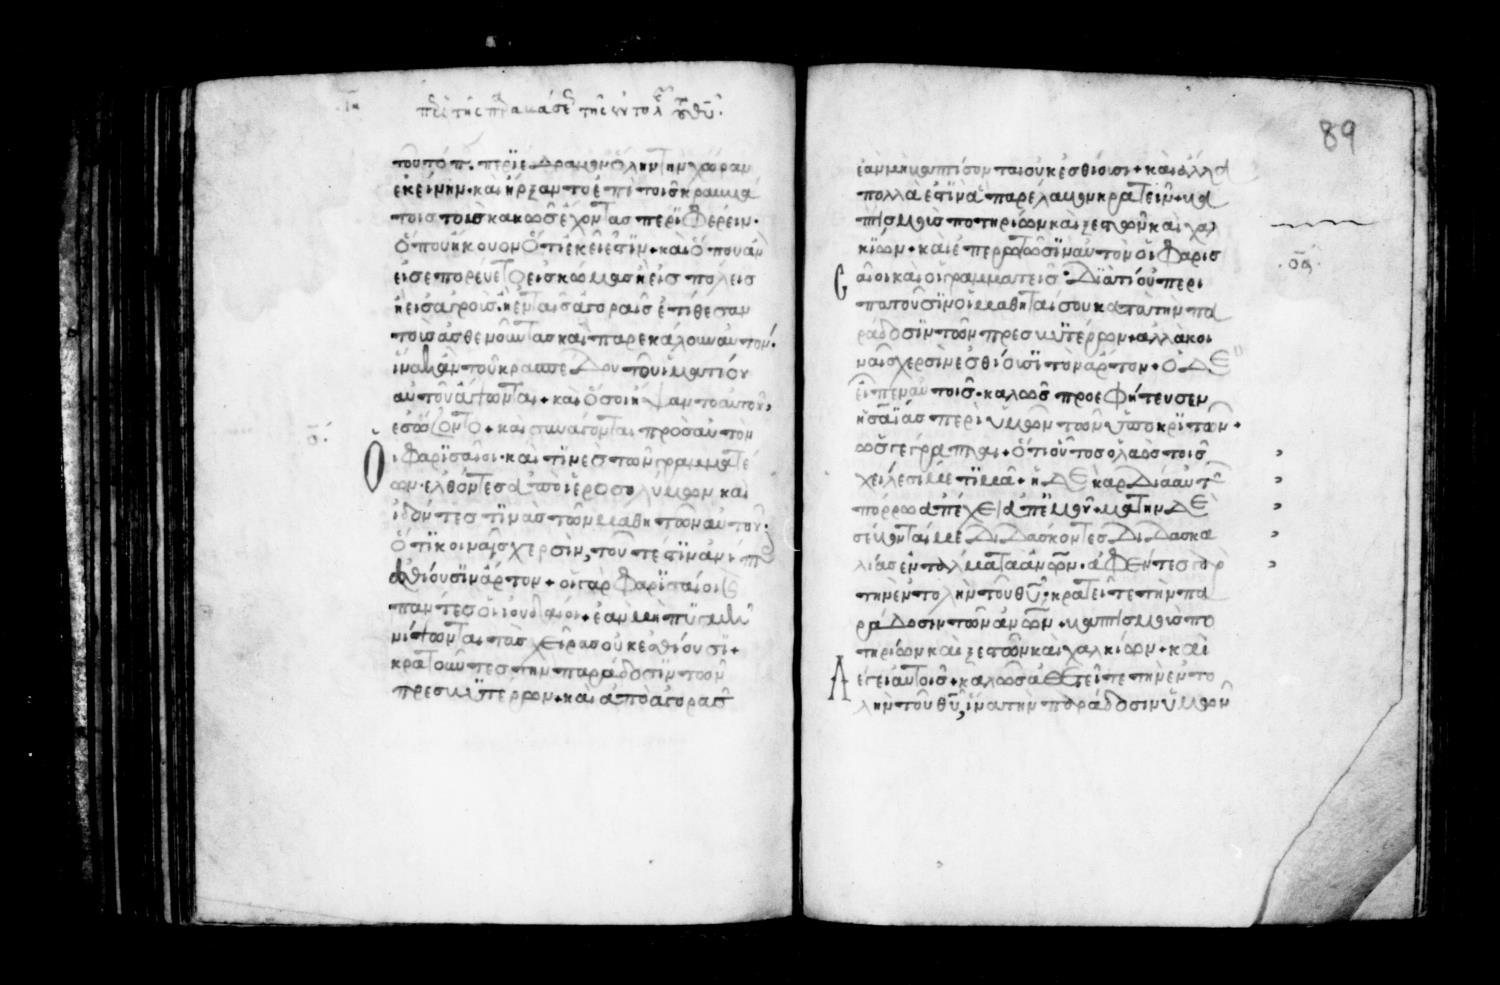 περὶ τῆς παραβάσε τῆς ἐντολ τοῦ θῦ.
τοῦτόπ. περιέδραμον ὅλην τὴν χώραν
ἐκείνην· καὶ ἤρξαντο ἐπὶ τοῖς κραββά
τοις τοὺς κακῶς ἔχοντας περιφέρειν·
ὅπου ἤκουον ὅτι ἐκεῖ ἐστίν· καὶ ὅπου ἂν
εἰσεπορεύετο εἰς κώμας ἢ εἰς πόλεις
ἢ εἰς ἀγροὺς· ἢ ἐν ταῖς ἀγοραῖς ἐτίθεσαν
τοὺς ἀσθενοῦντας καὶ παρεκάλουν αὐτόν·
ἵνα κἂν τοῦ κρασπέδου τοῦ ἱματίου
αὐτοῦ ἅψωνται· καὶ ὅσοι ἥψαντο αὐτοῦ,
ἐσῴζοντο· καὶ συνάγονται πρὸς αὐτὸν
οἱ φαρισαῖοι· καὶ τινὲς τῶν γραμματέ
ων· ἐλθόντες ἀπὸ ἱεροσολύμων καὶ
ἰδόντες τινὰς τῶν μαθητῶν αὐτοῦ·
ὅτι κοιναῖς χερσὶν, τοῦτ᾽ἔστιν ἀνίπτ
ἐσθίουσιν ἄρτον· οἱ γὰρ φαρισαῖοι καὶ
πάντες οἱ ἰουδαῖοι· ἐὰν μὴ πυγμῇ
νίψωνται τὰς χεῖρας οὐκ ἐσθίουσι·
κρατοῦντες τὴν παράδοσιν τῶν
πρεσβυτέρων· καὶ ἀπὸ ἀγορᾶς
ὅ
89
ἐὰν μὴ βαπτίσονται οὐκ ἐσθίουσι· καὶ ἄλλα
πολλά ἐστιν ἃ παρέλαβον κρατεῖν· βα
πτισμοὺς ποτηρίων καὶ ξεστῶν καὶ χαλ
κίων· καὶ ἐπερωτῶσιν αὐτὸν οἱ φαρισ
αῖοι καὶ οἱ γραμματεῖς· Διατί οὐ περι
πατοῦσιν οἱ μαθηταί σου κατὰ τὴν πα
ράδοσιν τῶν πρεσβυτέρων· ἀλλὰ κοι
ναῖς χερσὶν ἐσθίουσι τὸν ἄρτον· Ὁ δὲ
εἶπεν αὐτοῖς· καλῶς προεφήτευσεν
ἡσαΐας περὶ ὑμῶν τῶν ὑποκριτῶν·
ὡς γέγραπται· ὅτι οὗτος ὁ λαὸς τοῖς
χείλεσί με τιμᾶ· ἡ δὲ καρδία αὐτῶ
πόρρω ἀπέχει ἀπ᾽ ἐμοῦ· μάτην δὲ
σέβονταί με διδάσκοντες διδασκα
λίας ἐντάλματα ἀνων· ἀφέντες γὰρ
τὴν ἐντολὴν τοῦ θῦ· κρατεῖτε τὴν πα
ράδοσιν τῶν ἀνων· βαπτισμοὺς πο
τηρίων καὶ ξεστῶν καὶ χαλκίων· καὶ
λέγει αὐτοῖς· καλῶς ἀθετεῖτε τὴν ἐντο
λὴν τοῦ θῦ, ἵνα τὴν παράδοσιν ὑμῶν